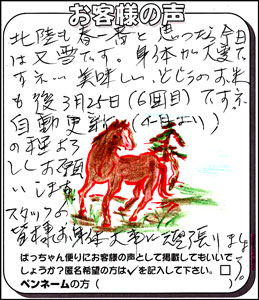 お客様の声
北陸も春一番と思ったら今日
は又雪です。身体が大変で
すネ… 美味しい、とどろのお米
も後3月25日(6回目)ですネ
自動更新(4月より)
の程よろ
しくお願
いします
スタッフの
皆様お身体大事に頑張りましょう。
ぱっちゃん便りにお客様の声として掲載してもいいで
しょうか?匿名希望の方は✓を記入して下さい。□
ペンネームの方(　　　)